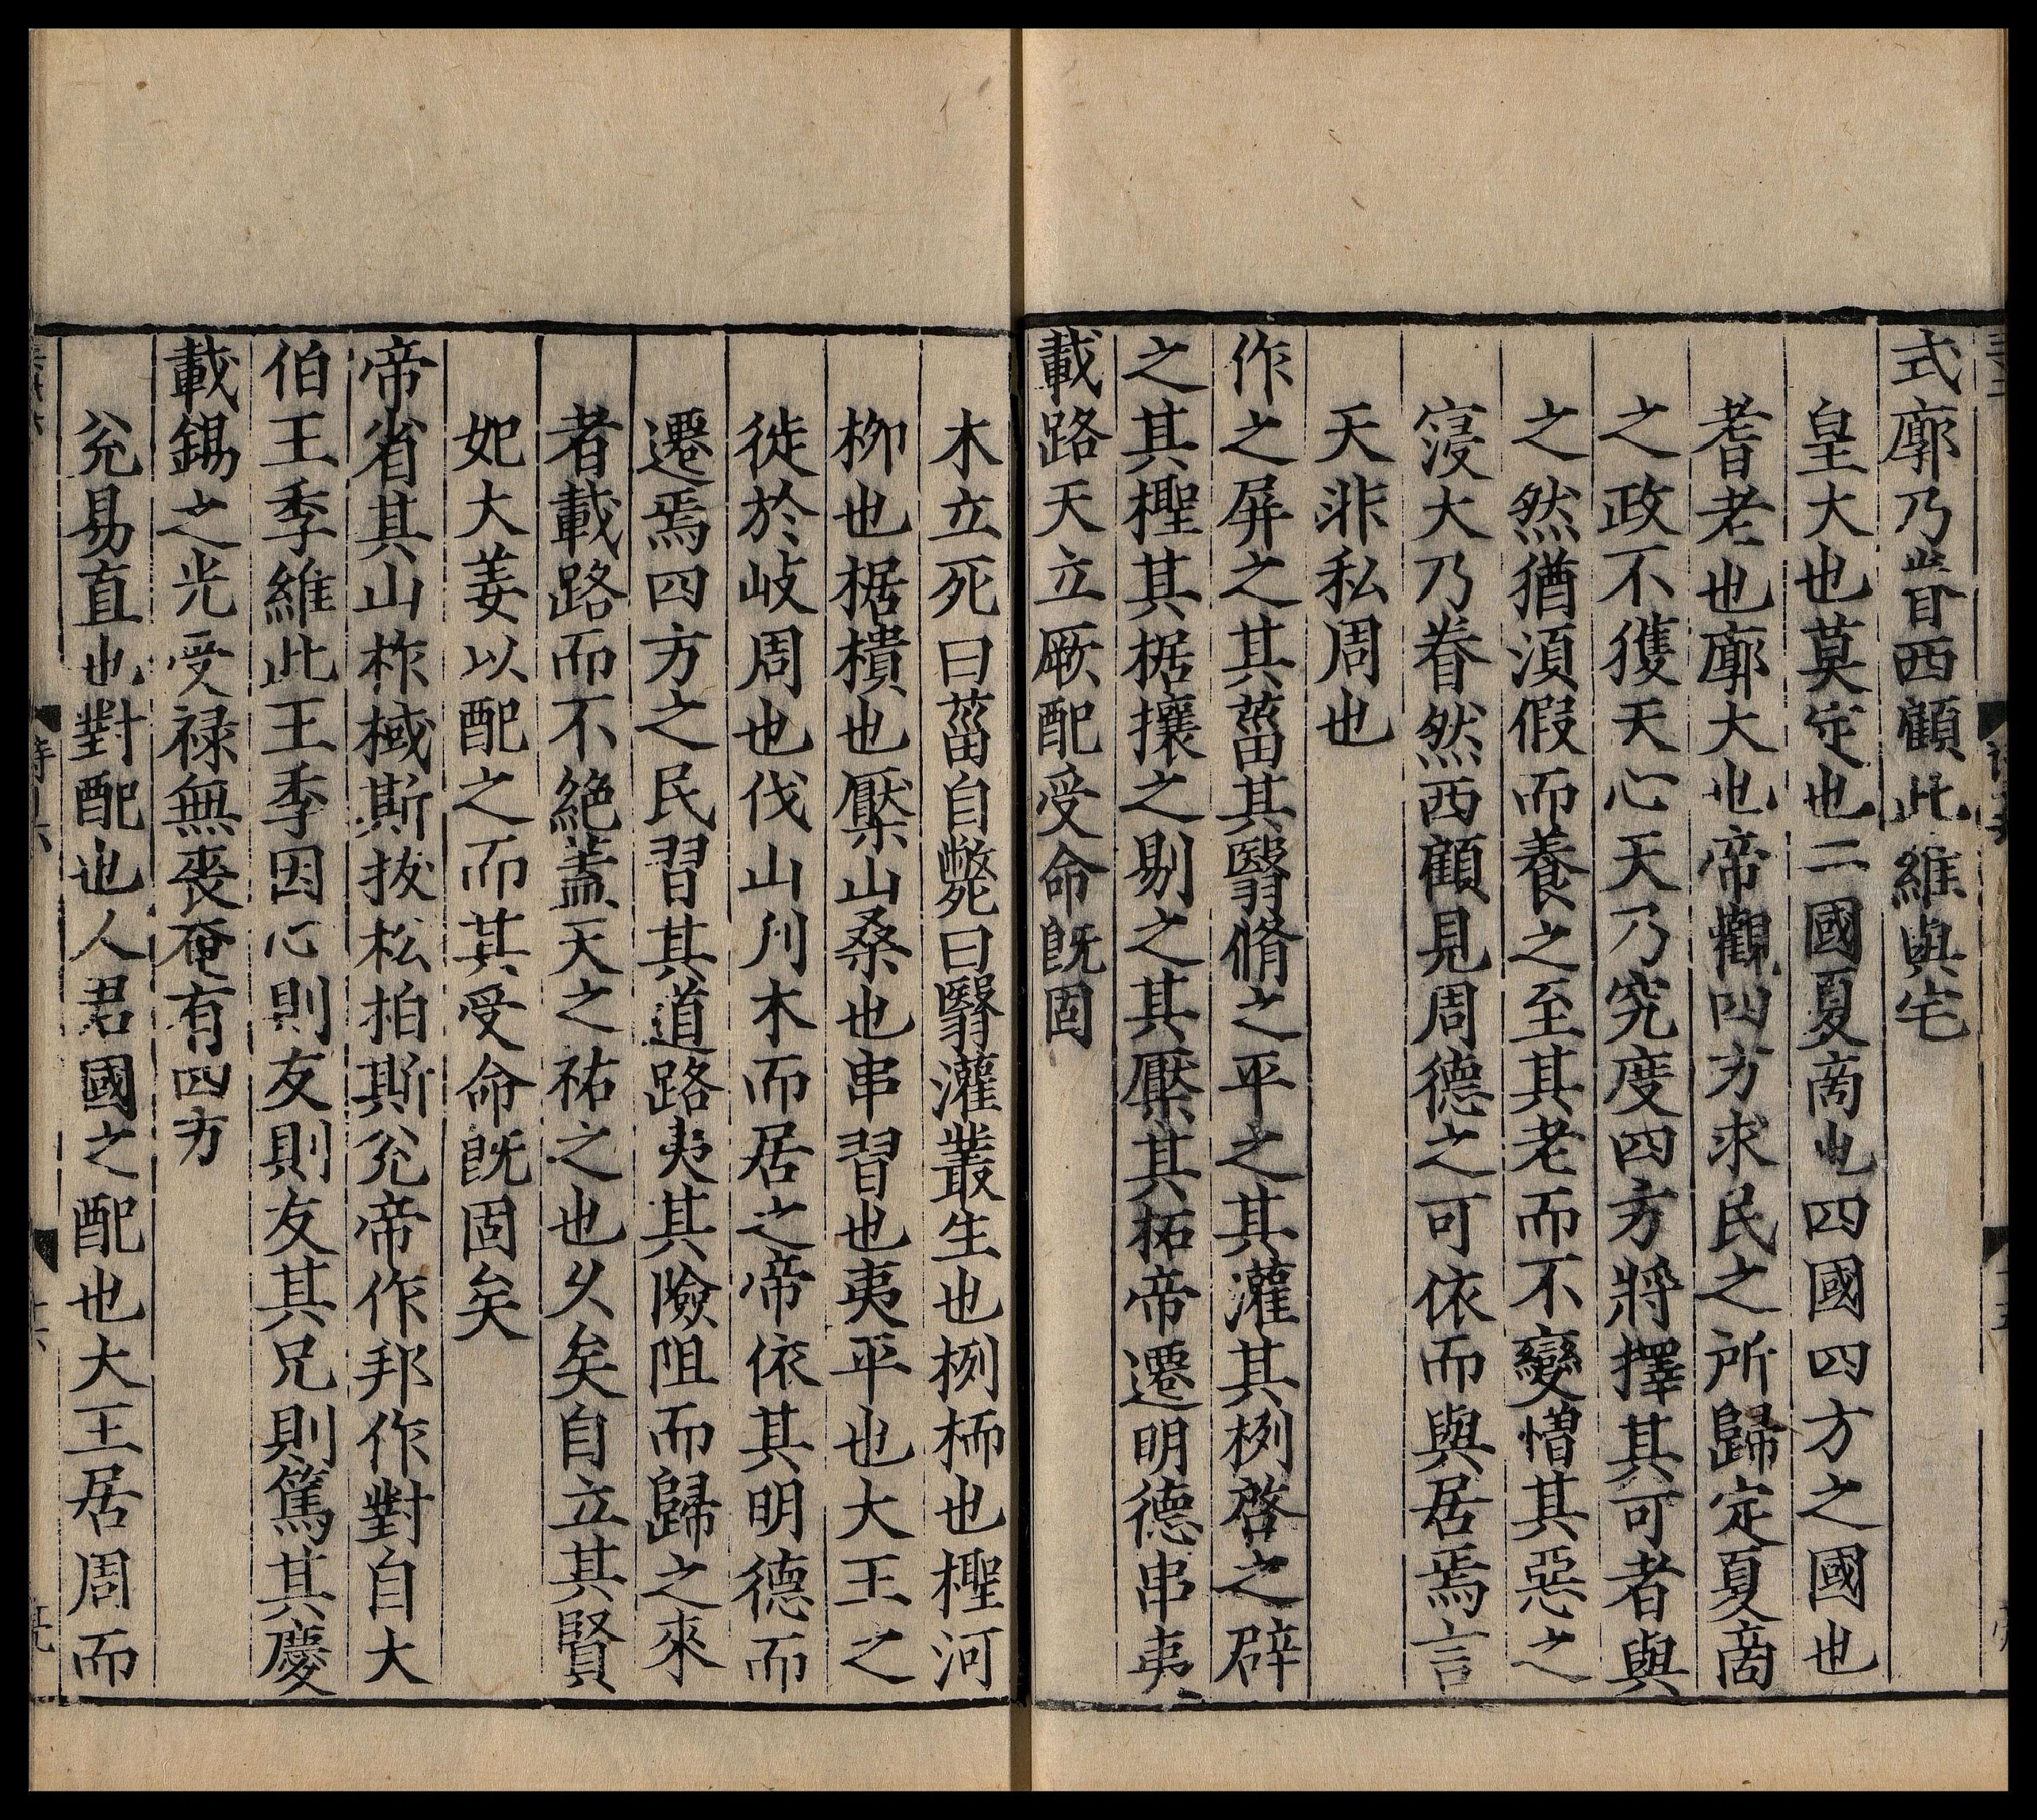 式廓乃眷西顧此維與宅
皇大也莫定也二國夏啇也四國四方之國也
耆老也廓大也帝觀四方求民之所歸定夏啇
之政不獲天心天乃究度四方將擇其可者與
之然猶湏假而養之至其老而不變憎其惡之
寖大乃眷然西顧見周德之可依而與居焉言
天非私周也
作之屏之其菑其翳脩之平之其灌其栵啓之辟
之其檉其椐攘之剔之其檿其柘帝遷明德串夷
載路天立厥配受命旣固
木立死曰菑自斃曰翳灌叢生也栵栭也檉河
柳也椐樻也檿山桑也串習也夷平也大王之
徙於岐周也伐山刋木而居之帝依其明德而
遷焉四方之民習其道路夷其險阻而歸之來
者載路而不絶蓋天之祐之也乆矣自立其賢
妃大姜以配之而其受命旣固矣
帝省其山柞棫斯拔松柏斯兊帝作邦作對自大
伯王季維此王季因心則友則友其兄則篤其慶
載錫之光受禄無喪奄有四方
兊易直也對配也人君國之配也大王居周而